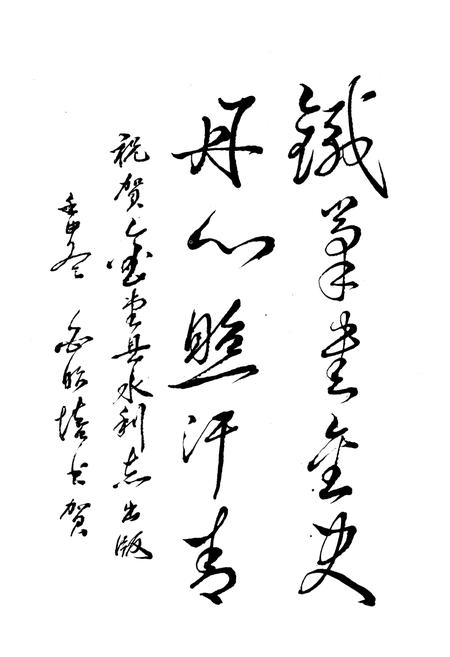 鐵筆書金史
丹心照汗青
祝賀金堂县水利志出版
壬申冬 书賀